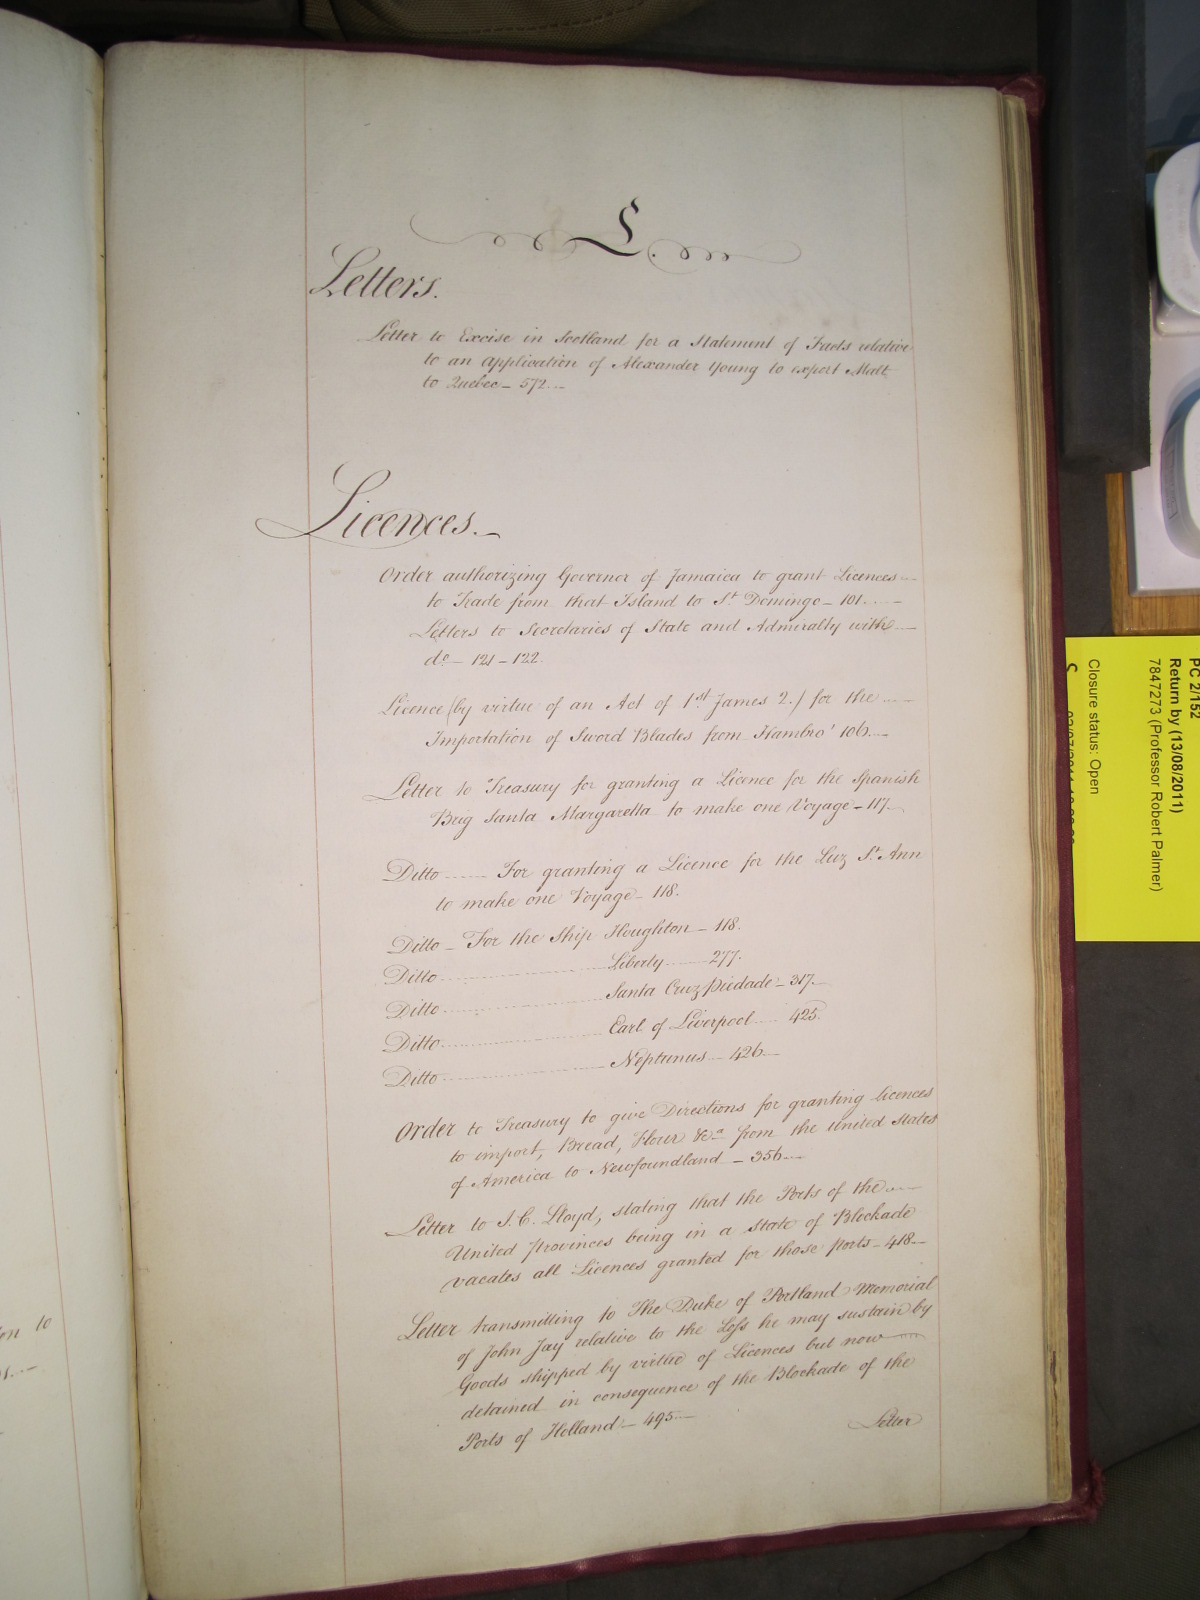 L.
Letters.
Letter to Excise in Scotland for a Statement of Facts relative
to an application of Alexander Young to export Malt
to Quebec - 572
Licences.
Order authorizing Governor of Jamaica to grant Licences
to Trade from that Island to St. Domingo - 101
Letters to Secretaries of State and Admiralty with
do - 121 - 122.
Licence (by virtue of an Act of 1st James 2.) for the
Importation of Sword Blades from Hambro' 106
Letter to Treasury for granting a Licence for the Spanish
Brig Santa Margaretta to make one Voyage - 117
Ditto For granting a Licence for the Luz St. Ann
to make one Voyage - 118.
Ditto - For the Ship Houghton - 118.
Ditto Liberty 277.
Ditto Santa Cruz Piedade - 317
Ditto Earl of Liverpool 425.
Ditto Neptunus - 426
Order to Treasury to give Directions for granting licences
to import, Bread, Flour &ca from the United States
of America to Newfoundland - 356
Letter to J. C. Lloyd, stating that the Ports of the
United Provinces being in a state of Blockade
vacates all Licences granted for those Ports - 418
Letter transmitting to The Duke of Portland Memorial
of John Jay relative to the Loss he may sustain by
Goods shipped by virtue of Licences but now
detained in consequence of the Blockade of the
Ports of Holland - 495
Letter
PC 2/152
Return by (13/08/2011)
7847273 (Professor Robert Palmer)
Closure status: Open